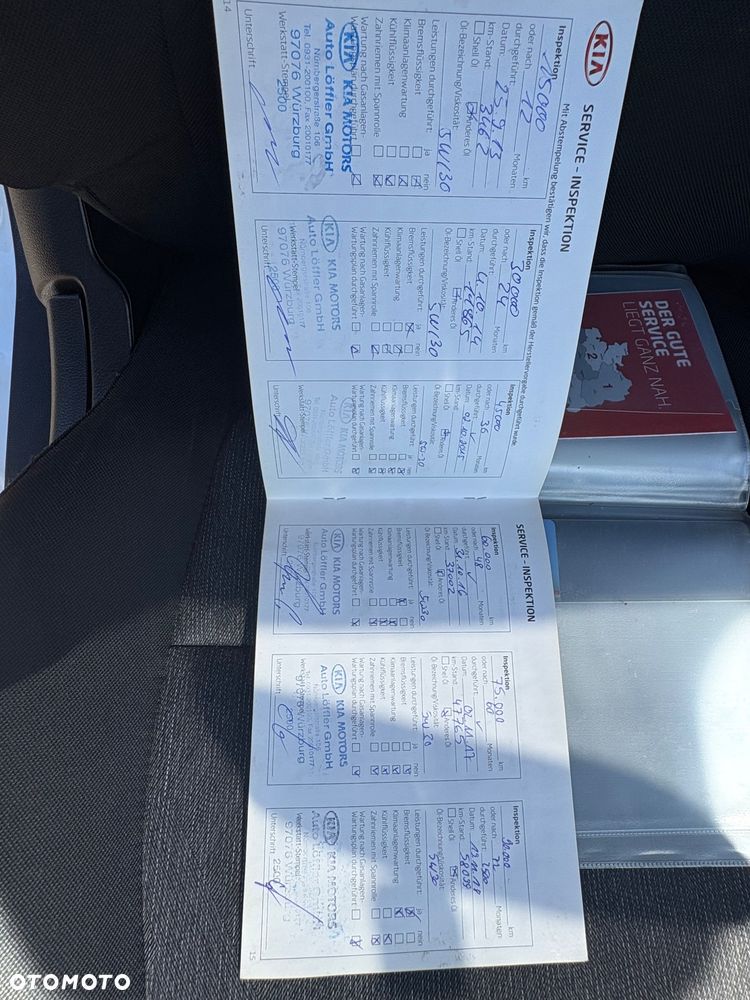 14
KIA
SERVICE - INSPEKTION
Mit Abstempelung bestätigen wir, dass die Inspektion gemäß der Herstellervorgabe durchgeführt wurde.
Inspektion
15000 km
oder nach 12 Monaten
durchgeführt:
Datum: 25.9.13
km-Stand:
Shell Öl Anderes Öl
Öl-Bezeichnung/Viskosität:
5W/30
Leistungen durchgeführt: ja nein
Bremsflüssigkeit
Klimaanlagenwartung
Kühlflüssigkeit
Zahnriemen mit Spannrolle
Wartung nach Gasanlagen-
KIA KIA MOTORS
Auto Löffler GmbH
Nürnbergerstraße 106
Tel. 0931-200100, Fax 20010177
97076 Würzburg
Werkstatt-Stempel
2500
Unterschrift
Inspektion
30.000 km
oder nach 24 Monaten
durchgeführt:
Datum: 4.10.14
km-Stand: 19865
Shell Öl Anderes Öl
Öl-Bezeichnung/Viskosität:
5W/30
Leistungen durchgeführt: ja nein
Bremsflüssigkeit
Klimaanlagenwartung
Kühlflüssigkeit
Zahnriemen mit Spannrolle
Wartung nach Gasanlagen-
Wartungsplan durchgeführt
KIA KIA MOTORS
Auto Löffler GmbH
Werkstatt-Stempel
97076 Würzburg
Unterschrift
Inspektion
45000 km
oder nach 36 Monaten
durchgeführt:
Datum: 02.10.2015
km-Stand:
Shell Öl Anderes Öl
Öl-Bezeichnung/Viskosität:
Leistungen durchgeführt: ja nein
Bremsflüssigkeit
Klimaanlagenwartung
Kühlflüssigkeit
Zahnriemen mit Spannrolle
Wartung nach Gasanlagen-
Wartungsplan durchgeführt
KIA MOTORS
Auto Löffler GmbH
Werkstatt-Stempel
Unterschrift
SERVICE - INSPEKTION
Inspektion
60.000 km
oder nach 48 Monaten
durchgeführt:
Datum: 31.10.16
km-Stand: 37002
Shell Öl Anderes Öl
Öl-Bezeichnung/Viskosität:
5W30
Leistungen durchgeführt: ja nein
Bremsflüssigkeit
Klimaanlagenwartung
Kühlflüssigkeit
Zahnriemen mit Spannrolle
Wartung nach Gasanlagen-
Wartungsplan durchgeführt
KIA KIA MOTORS
Auto Löffler GmbH
Werkstatt-Stempel
Unterschrift
Inspektion
75.000 km
oder nach 60 Monaten
durchgeführt:
Datum: 02.11.17
km-Stand: 47765
Shell Öl Anderes Öl
Öl-Bezeichnung/Viskosität:
Leistungen durchgeführt: ja nein
Bremsflüssigkeit
Klimaanlagenwartung
Kühlflüssigkeit
Zahnriemen mit Spannrolle
Wartung nach Gasanlagen-
Wartungsplan durchgeführt
KIA KIA MOTORS
Auto Löffler GmbH
97076 Würzburg
Unterschrift
Inspektion
90.000 km
oder nach 72 Monaten
durchgeführt: 2500
Datum: 12.11.18
km-Stand: 58039
Shell Öl Anderes Öl
Öl-Bezeichnung/Viskosität:
5W30
Leistungen durchgeführt: ja nein
Bremsflüssigkeit
Klimaanlagenwartung
Kühlflüssigkeit
Zahnriemen mit Spannrolle
Wartung nach Gasanlagen-
Wartungsplan durchgeführt
KIA KIA MOTORS
Auto Löffler GmbH
Werkstatt-Stempel
97076 Würzburg
Unterschrift 2500
15
DER GUTE
SERVICE
LIEGT GANZ NAH.
2
1
OTOMOTO